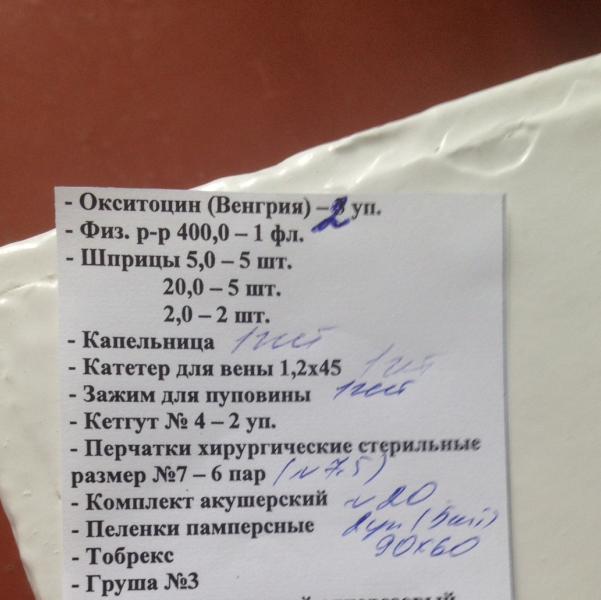 - Окситоцин (Венгрия) – 2 уп.
- Физ. р-р 400,0 – 1 фл.
- Шприцы 5,0 – 5 шт.
20,0 – 5 шт.
2,0 – 2 шт.
- Капельница 1 шт
- Катетер для вены 1,2х45 1 шт
- Зажим для пуповины 1 шт
- Кетгут № 4 – 2 уп.
- Перчатки хирургические стерильные
размер №7 – 6 пар (№ 7.5)
- Комплект акушерский № 20
- Пеленки памперсные 2 уп (5 шт)
90х60
- Тобрекс
- Груша №3